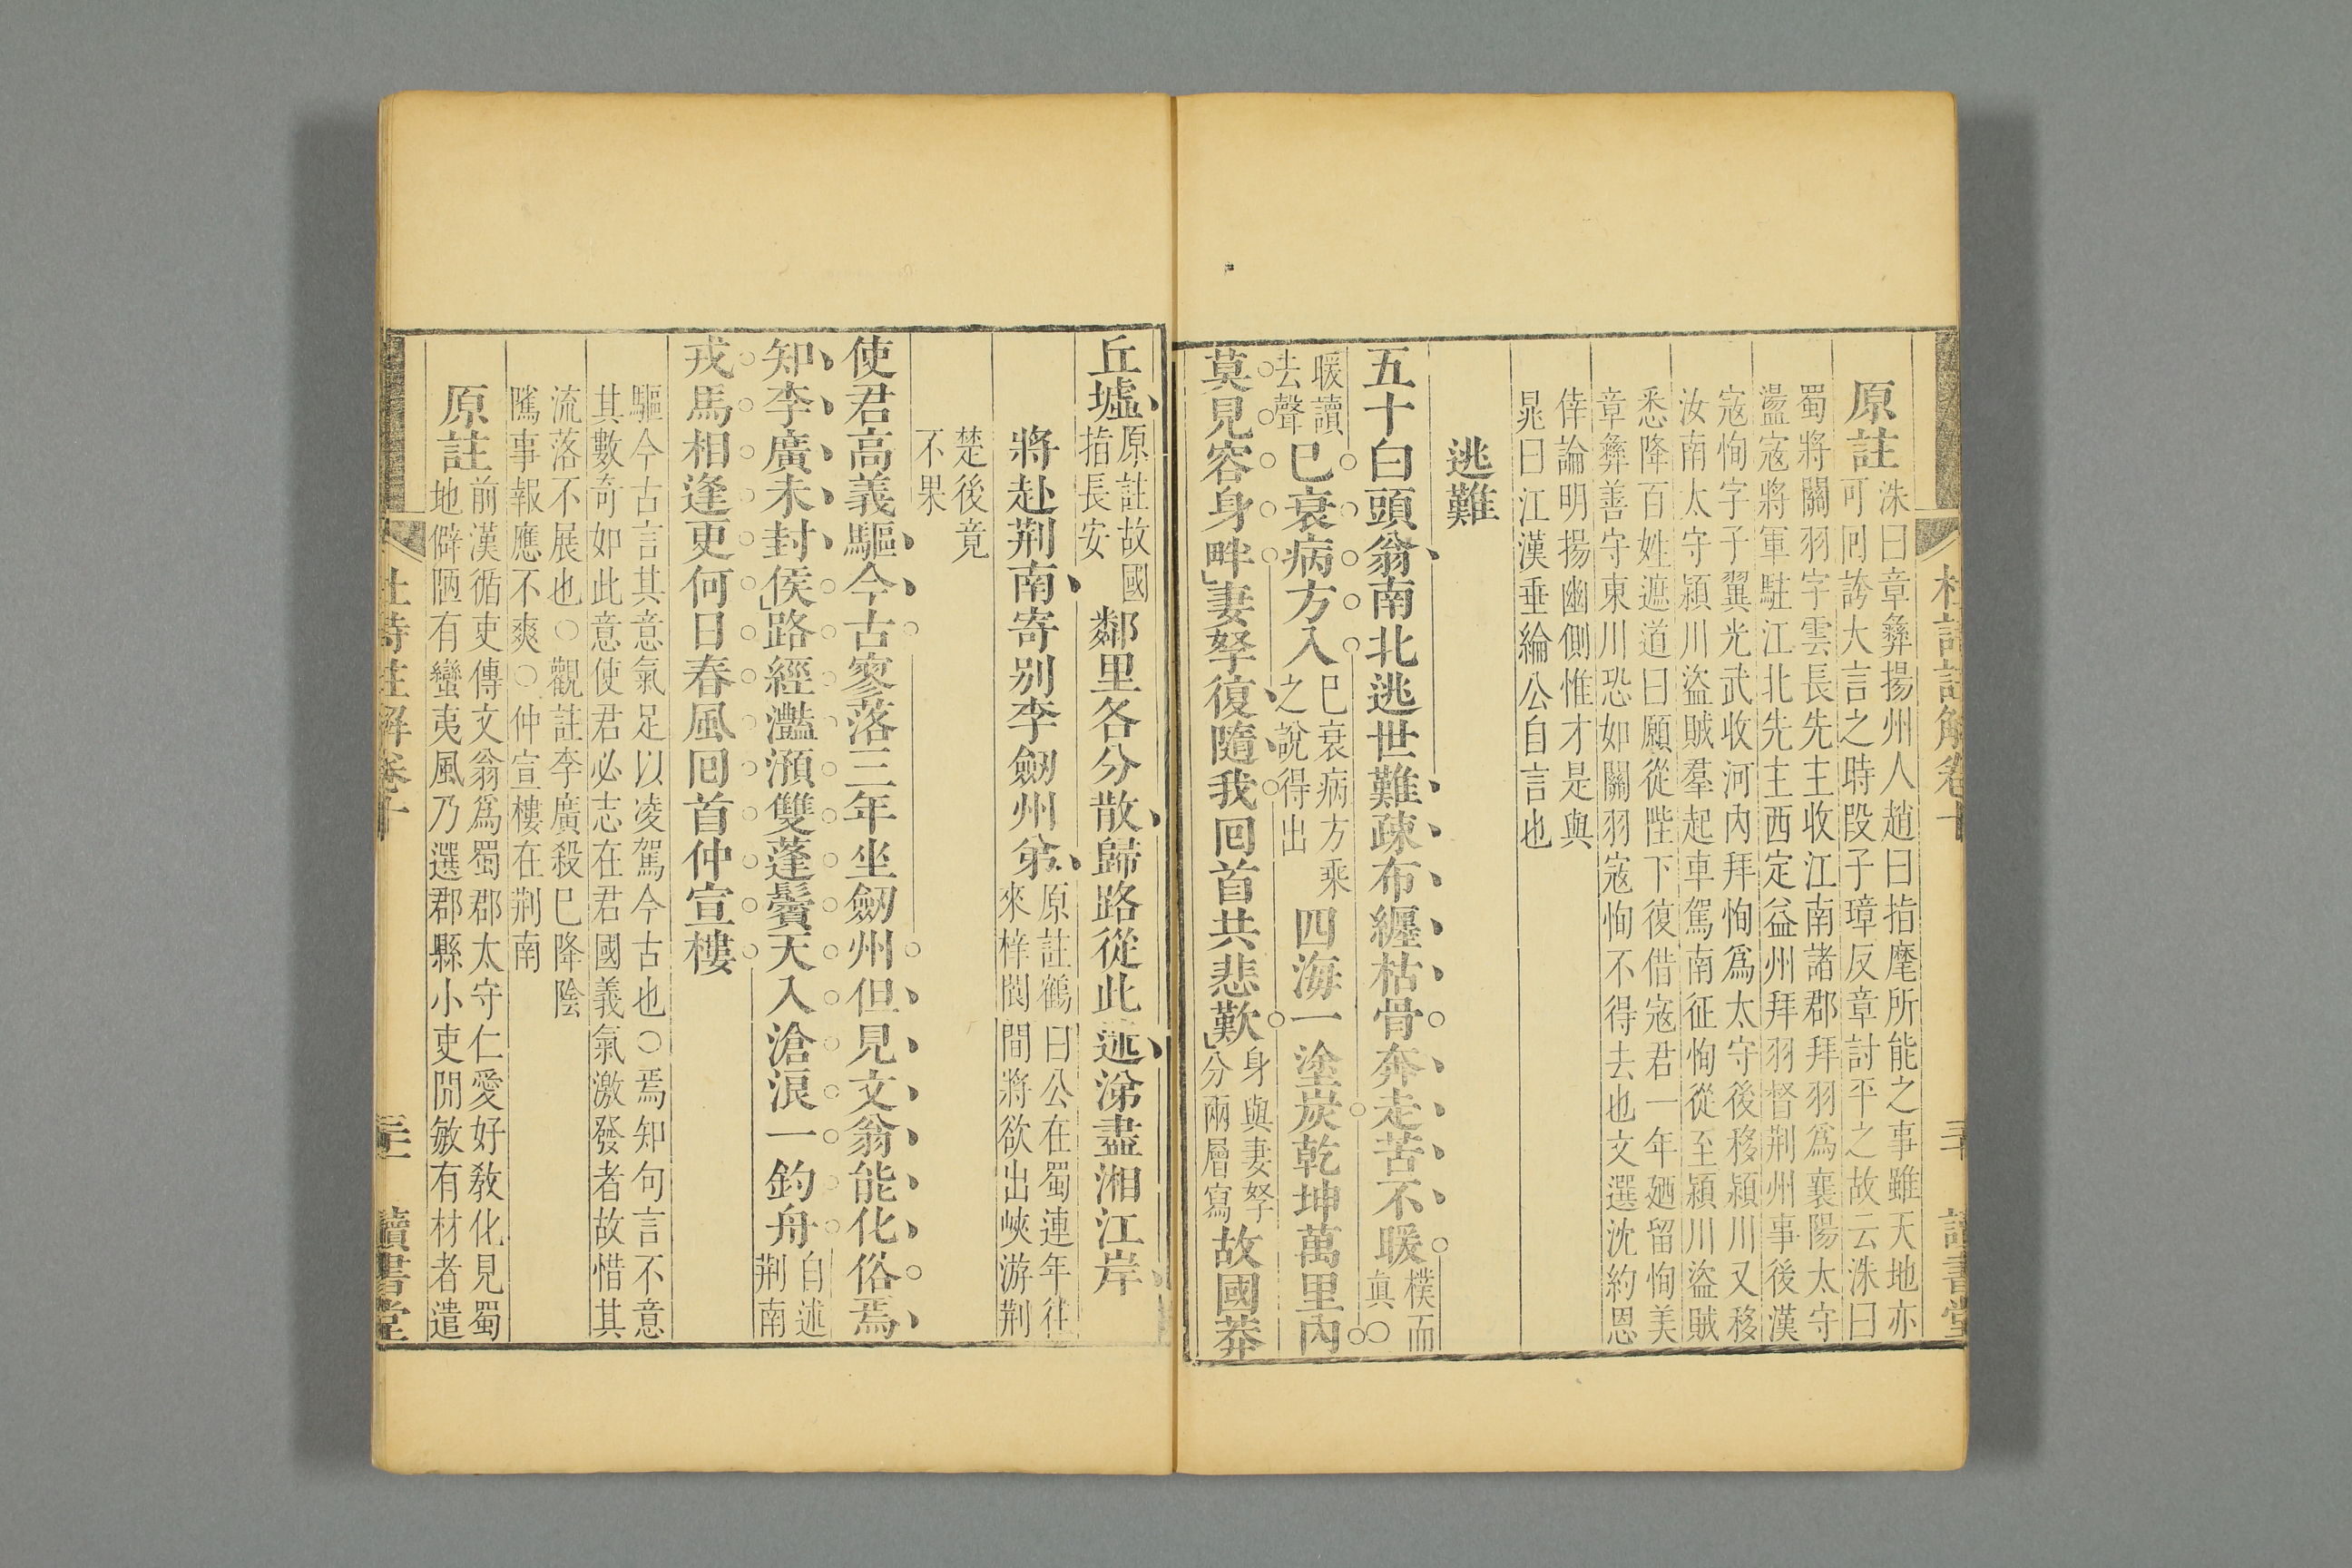 原註
洙曰章彝揚州人趙曰指麾所能之事雖天地亦
可囘誇大言之時段子璋反章討平之故云洙曰
蜀將關羽字雲長先主收江南諸郡拜羽爲襄陽太守
盪寇將軍駐江北先主西定益州拜羽督荆州事後漢
寇恂字子翼光武收河內拜恂爲太守後移潁川又移
汝南太守潁川盜賊羣起車駕南征恂從至潁川盜賊
悉降百姓遮道曰願從陛下復借寇君一年廼留恂美
章彝善守東川恐如關羽寇恂不得去也文選沈約恩
倖論明揚幽側惟才是與
晁曰江漢垂綸公自言也
逃難
五十白頭翁南北逃世難疎布纏枯骨奔走苦不暖樸而
眞○
暖讀
去聲
已衰病方入巳衰病方乘
之說得出
四海一塗炭乾坤萬里內
莫見容身畔妻孥復隨我囘首共悲歎身與妻孥
分兩層寫
故國莽
丘墟原註故國
指長安
鄰里各分散歸路從此迷涕盡湘江岸
將赴荆南寄別李劒州弟原註鶴曰公在蜀連年往
來梓閬間將欲出峽游荆
楚後竟
不果
使君高義驅今古寥落三年坐劒州但見文翁能化俗焉
知李廣未封侯路經灩澦雙蓬鬢天入滄浪一釣舟自述
荆南
戎馬相逢更何日春風囘首仲宣樓
驅今古言其意氣足以凌駕今古也○焉知句言不意
其數奇如此意使君必志在君國義氣激發者故惜其
流落不展也○觀註李廣殺巳降陰
隲事報應不爽○仲宣樓在荆南
原註
前漢循吏傳文翁爲蜀郡太守仁愛好敎化見蜀
地僻陋有蠻夷風乃選郡縣小吏開敏有材者遣
杜詩註解卷十 三十一 讀書堂